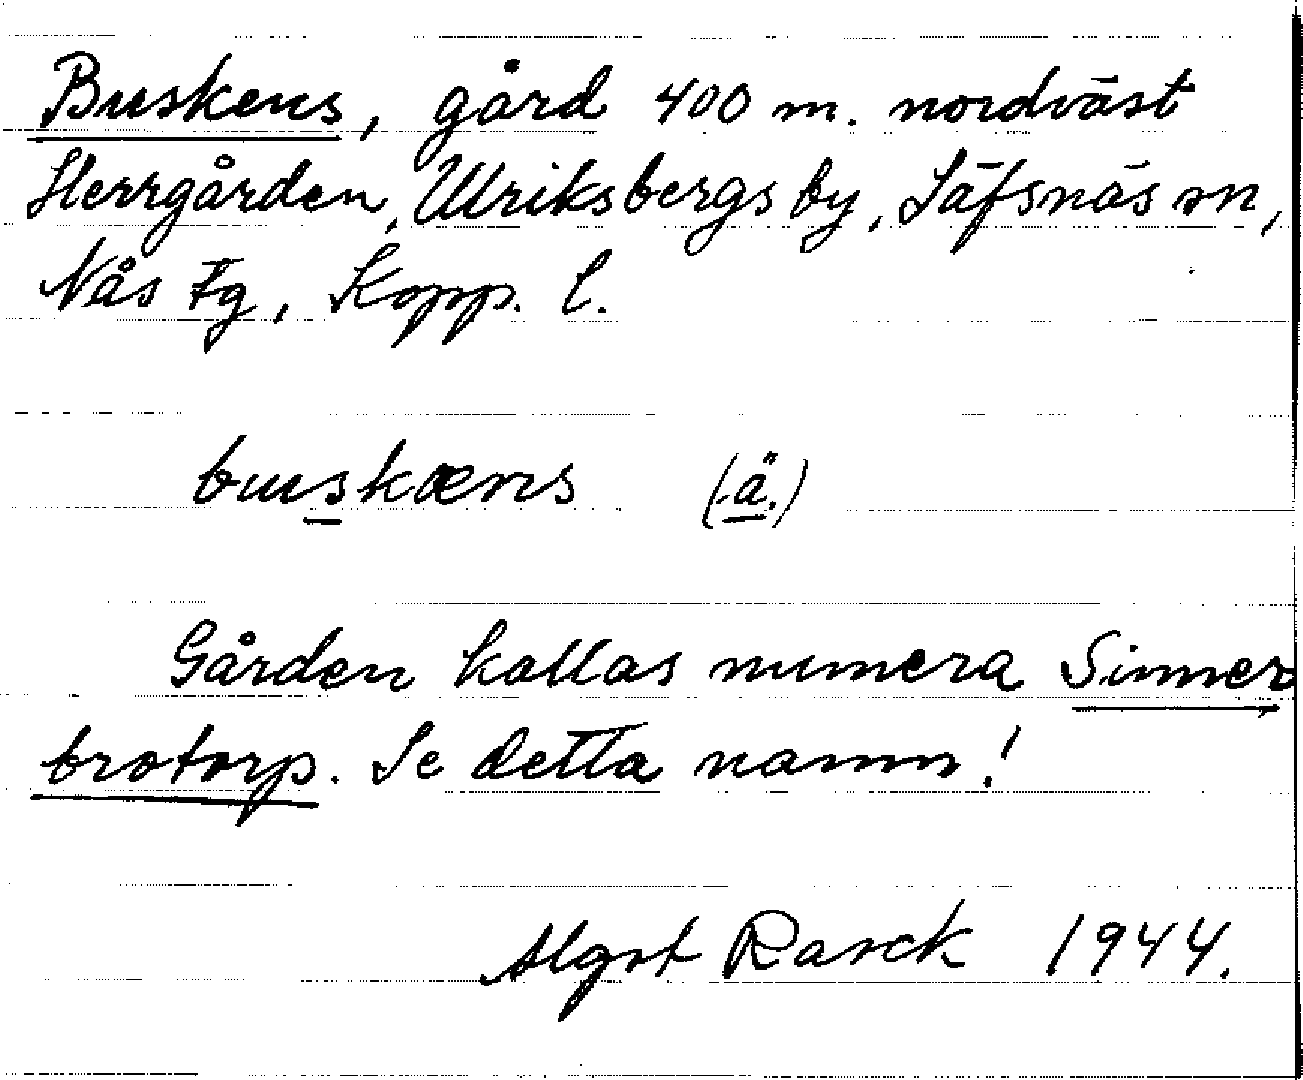 Buskens, gård 400 m. nordväst
Herrgården, Ulriksbergs by, Säfsnäs sn,
Nås Fg, Kopp. l.
buskæns (-ä.)
Gården kallas numera Sinner
brotorp. Se detta namn!
Algot Rasck 1944.